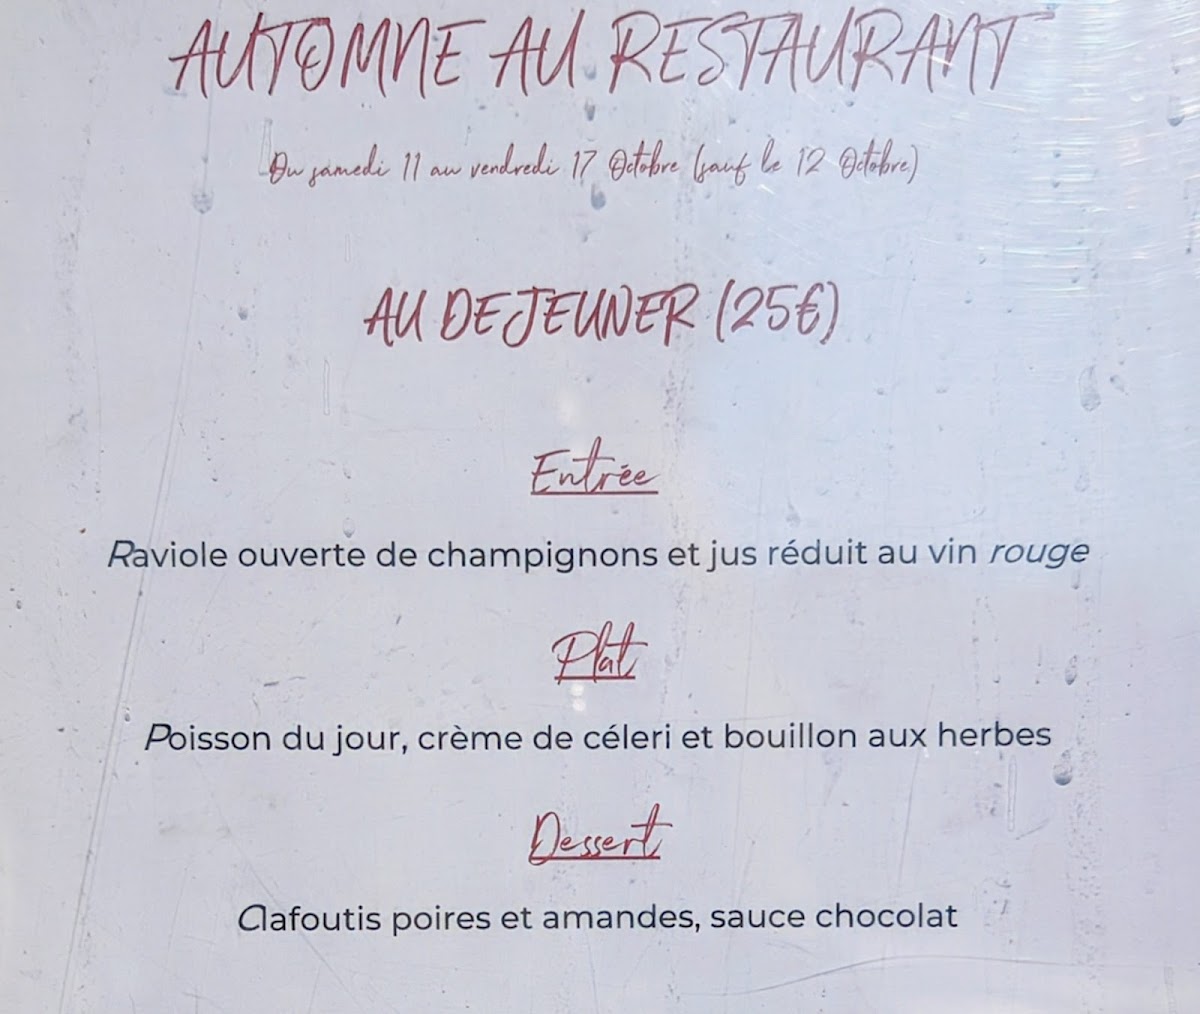 AUTOMNE AU RESTAURANT
Du samedi 11 au vendredi 17 Octobre (sauf le 12 Octobre)
AU DEJEUNER (25€)
Entrée
Raviole ouverte de champignons et jus réduit au vin rouge
Plat
Poisson du jour, crème de céleri et bouillon aux herbes
Dessert
Clafoutis poires et amandes, sauce chocolat